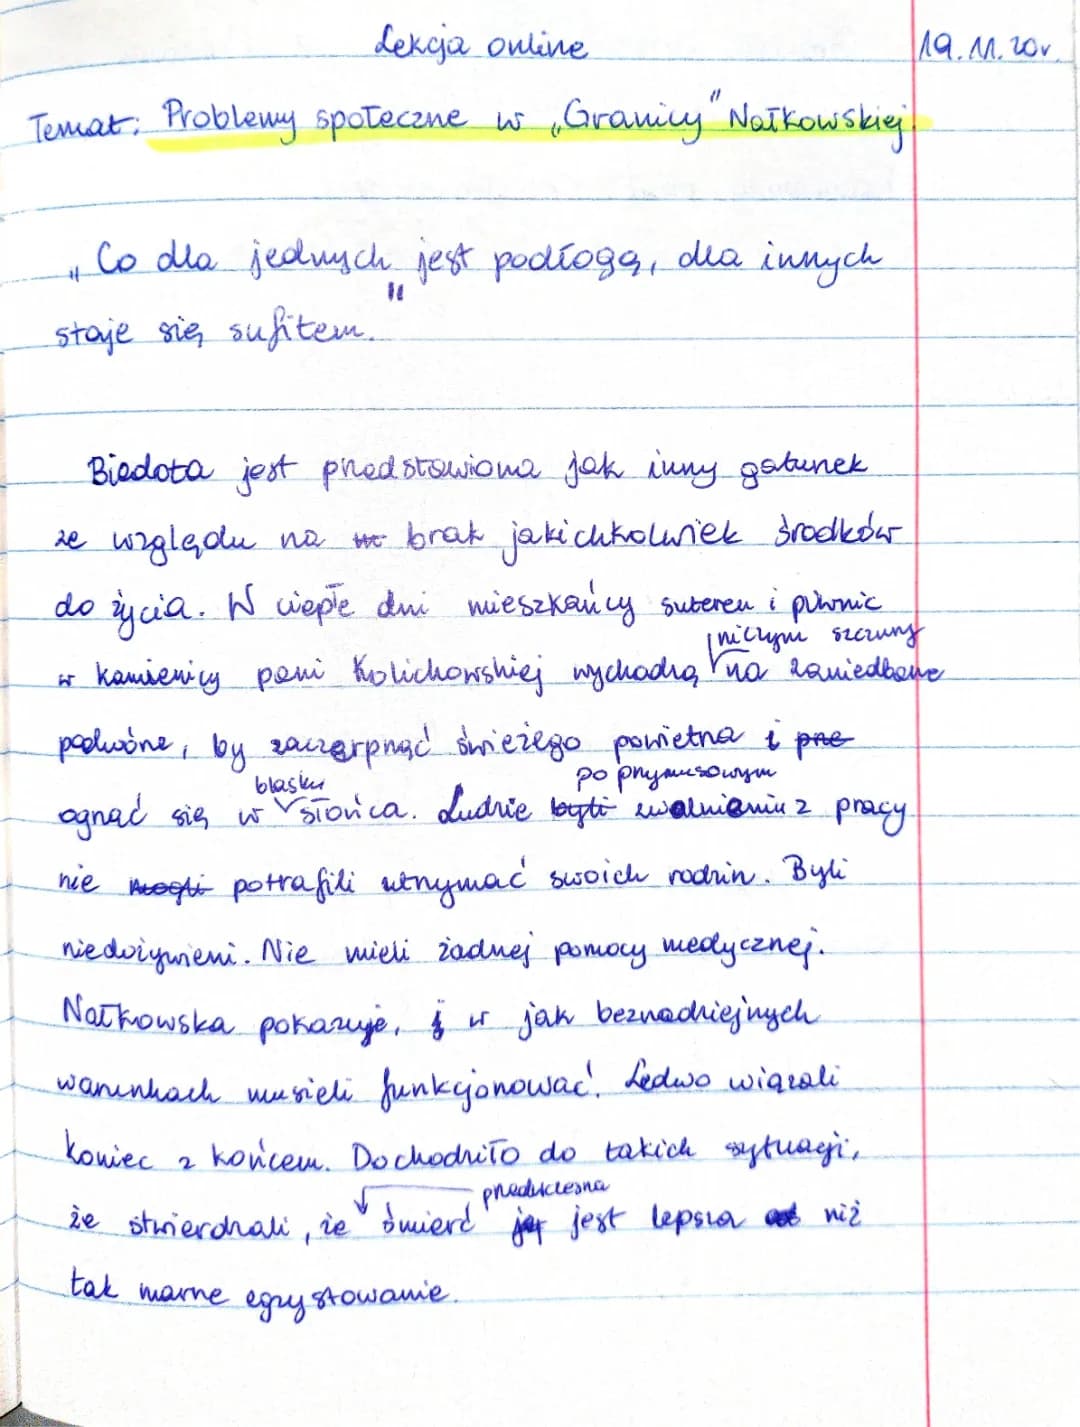 Lekcja online 19.11.20r.
Temat: Problemy społeczne w „Granicy" Nałkowskiej.
„Co dla jednych jest podłogą, dla innych
staje się sufitem."
Biedota jest przedstawiona jak inny gatunek
ze względu na brak jakichkolwiek środków
do życia. W ciepłe dni mieszkańcy suteren i piwnic
niczym szczury
w kamienicy pani Kolichowskiej wychodzą na zaniedbane
podwórze, by zaczerpnąć świeżego powietrza i prze
blasku po przymusowym
ogrzać się w słońca. Ludzie byli zwolnieniu z pracy
nie mogli potrafili utrzymać swoich rodzin. Byli
niedożywieni. Nie mieli żadnej pomocy medycznej.
Nałkowska pokazuje, w jak beznadziejnych
warunkach musieli funkcjonować. Ledwo wiązali
koniec z końcem. Dochodziło do takich sytuacji,
przedwczesna
że stwierdzali, że śmierć jest lepsza niż
tak marne egzystowanie.